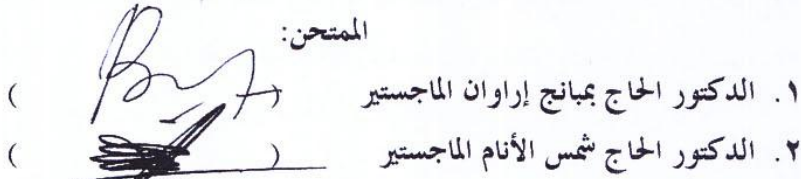 الممتحن:
١. الدكتور الحاج بمبانج إراوان الماجستير ( )
٢. الدكتور الحاج شمس الأنام الماجستير ( )